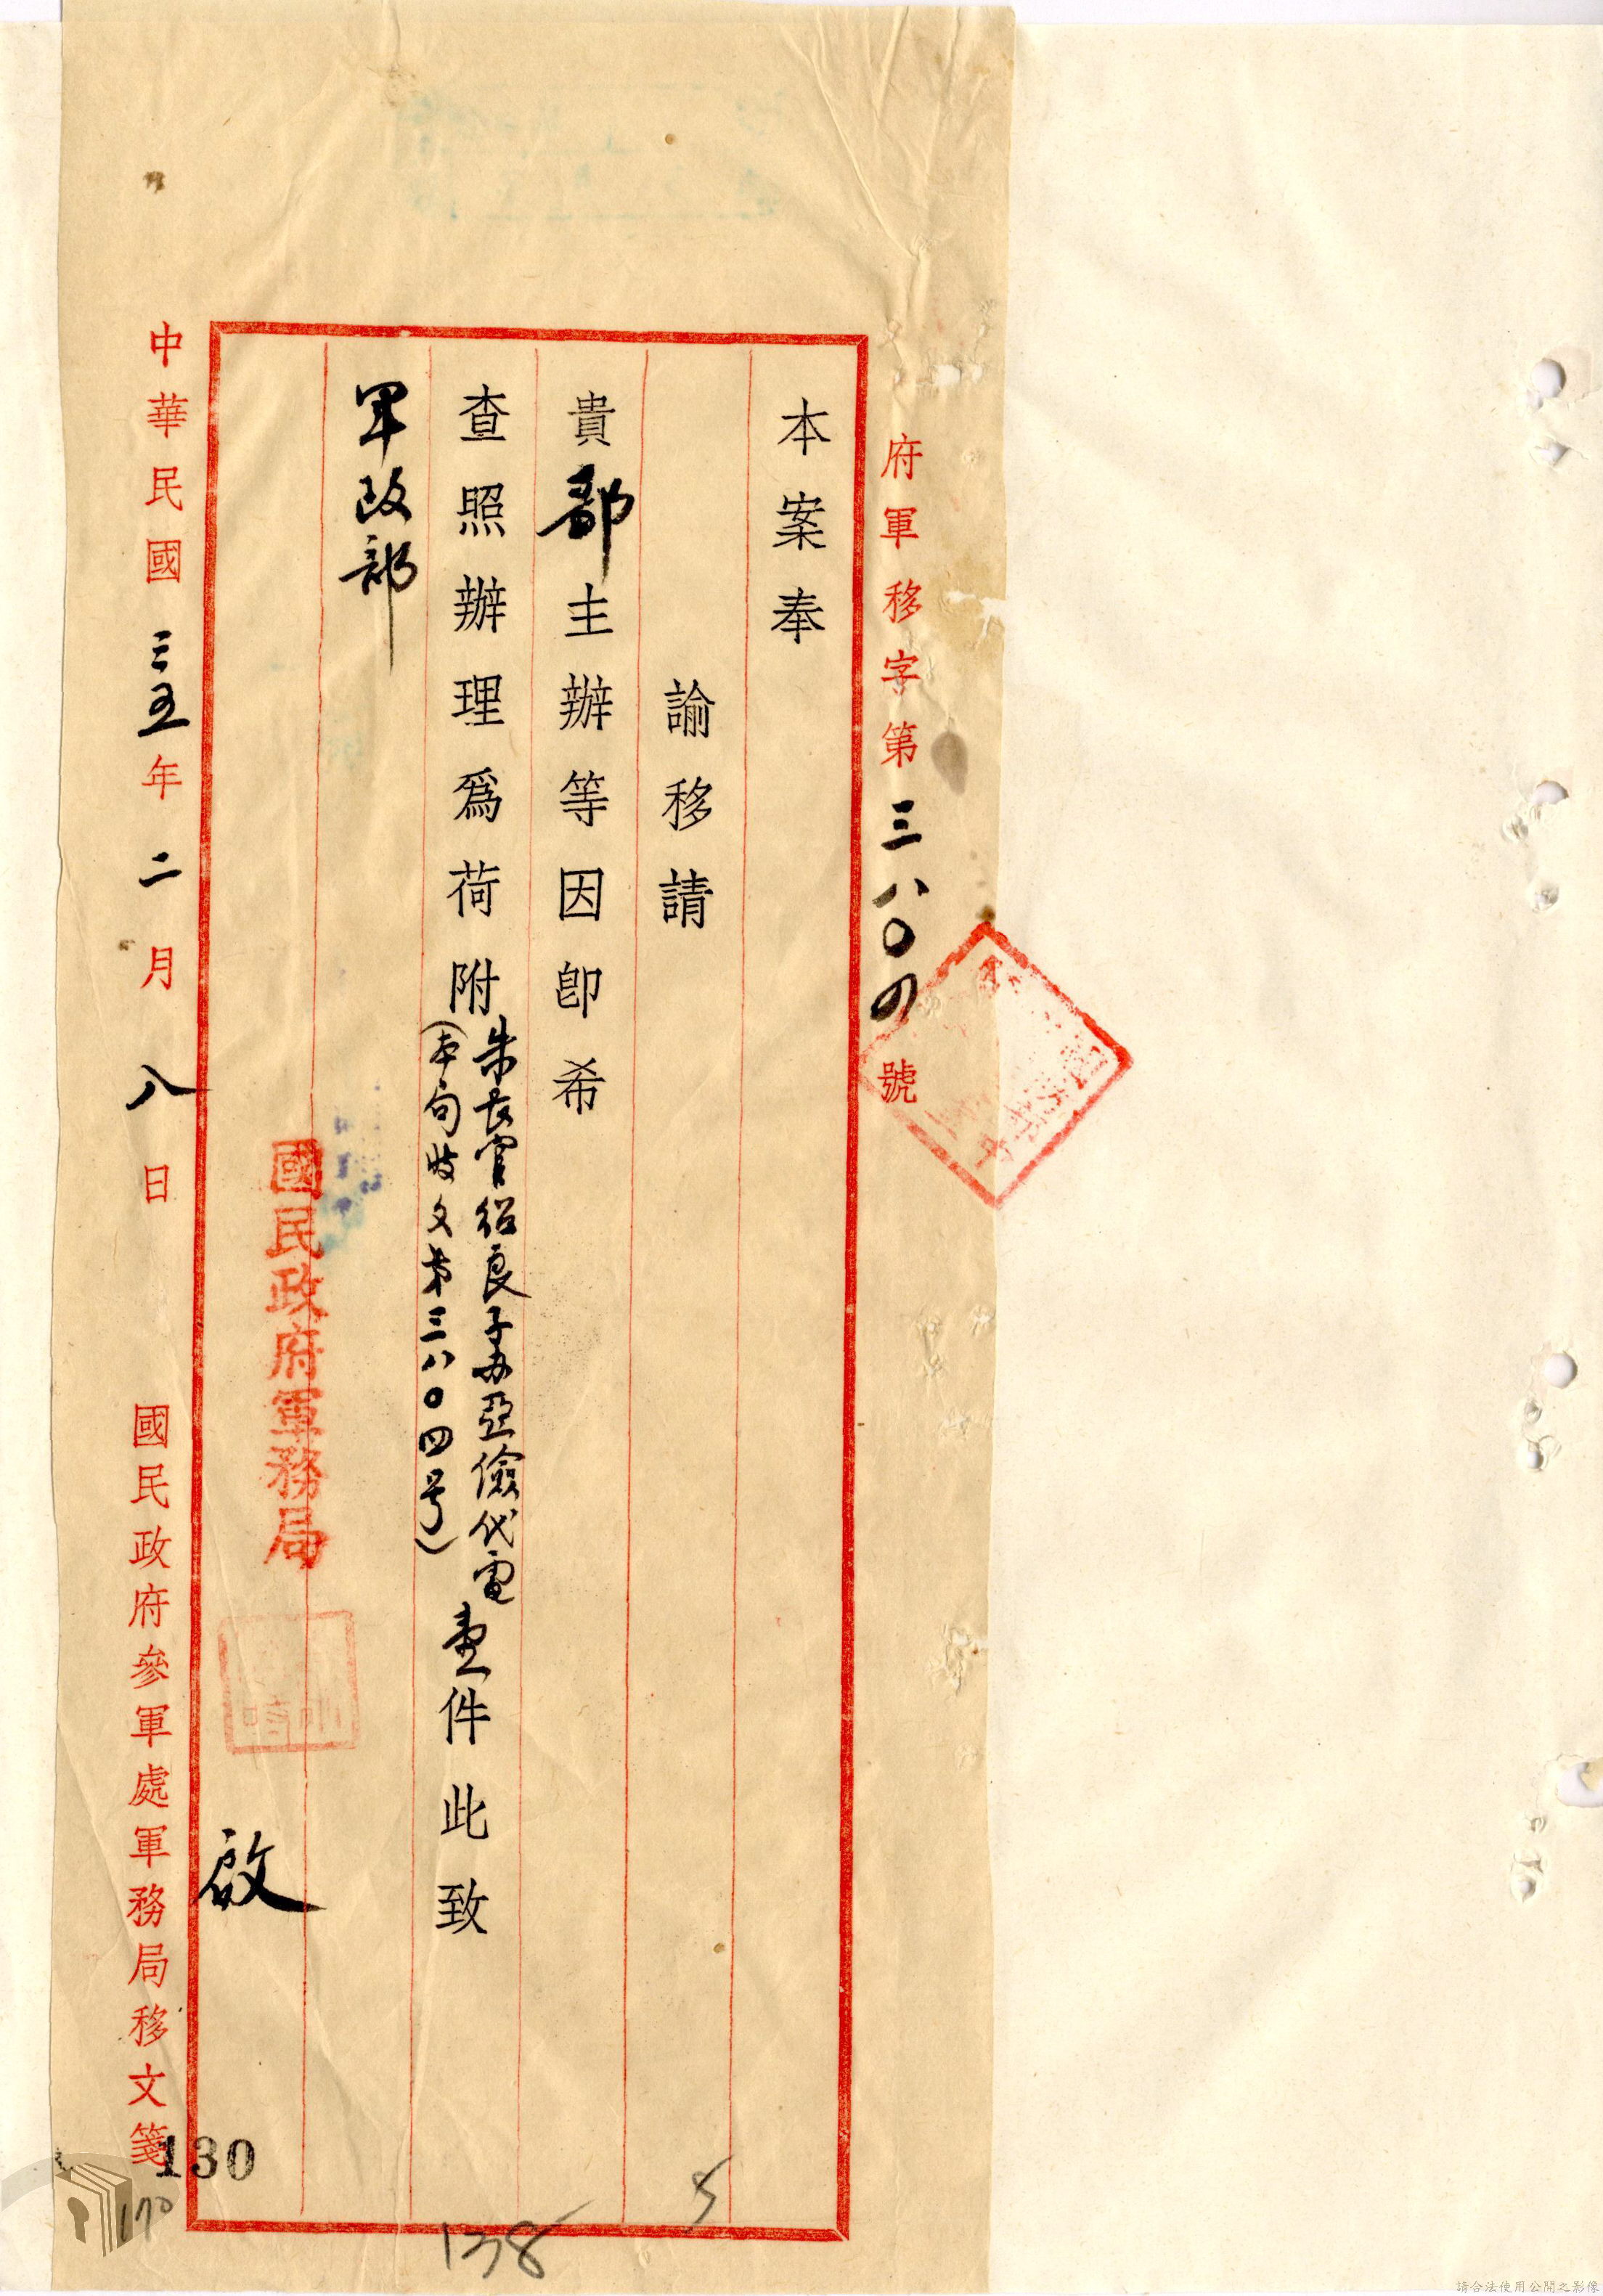 府軍移字第三八〇四號
本案奉
諭移請
貴部主辦等因卽希
查照辦理爲荷附朱長官紹良子養亞儉代電（本局收文第三八〇四号）壹件此致
軍政部
國民政府軍務局
啟
中華民國三五年二月八日
國民政府參軍處軍務局移文箋
130
170
138
5
請合法使用公開之影像